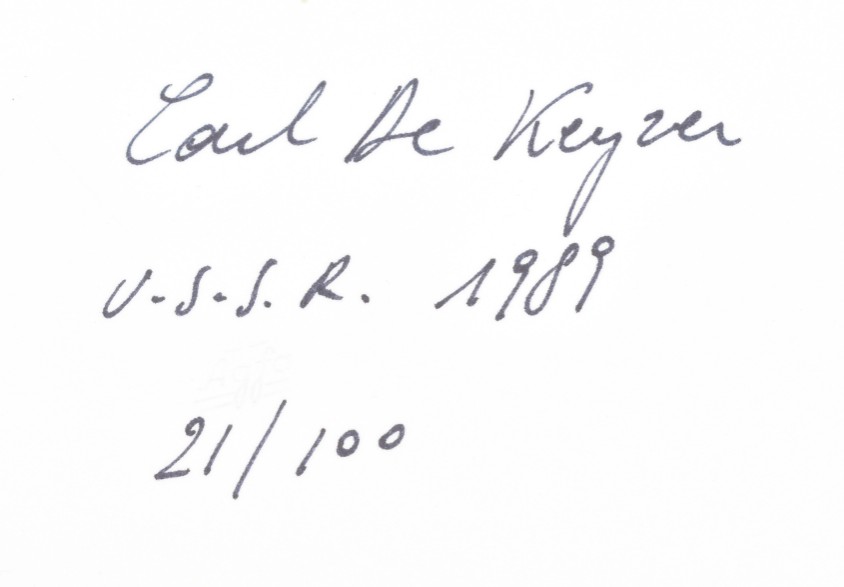 Carl De Keyzer
U.S.S.R. 1989
21/100